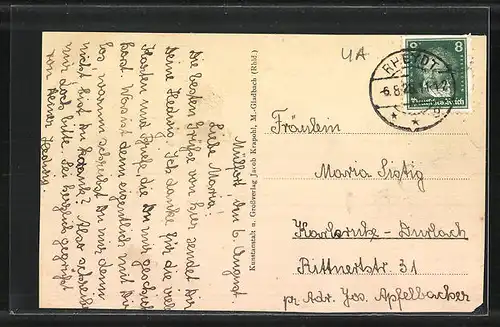 Mülfort den 6. August.
Liebe Maria!
Die besten Grüße von hier sendet Dir
Deine Hedwig. Ich danke für die viele
Karten und Briefe, die Du mir geschickt
hast. Was ist denn eigentlich mit Dir
los warum schreibst Du mir denn
nicht bist Du krank? Also schreibe
mir doch bitte. Sei herzlich gegrüßt
von Deiner Hedwig.
Kunstanstalt u. Großverlag Jacob Krapohl, M.-Gladbach (Rhld.)
4A
RHEYDT
-6.8.26
8
Deutsches Reich
Fräulein
Maria Listig
Karlsruhe - Durlach
Rittnertstr. 31
pr Adr. Jos. Apfelbacher